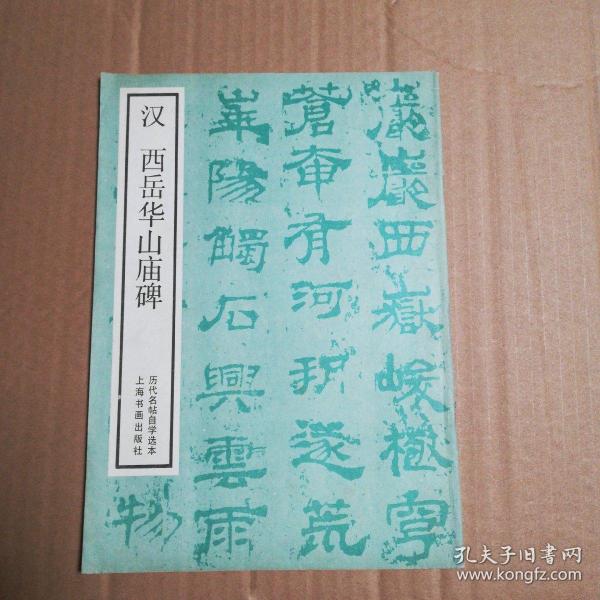 汉 西岳华山庙碑
历代名帖自学选本
上海书画出版社
巖巖西嶽峻極穹
蒼奄有河朔遂荒
華陽觸石興雲雨
物
孔夫子旧书网
www.kongfz.com